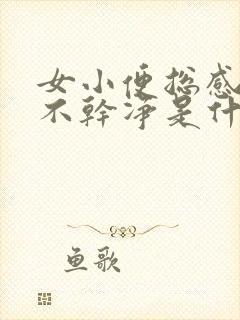 女小便总感
不幹净是什
鱼歌